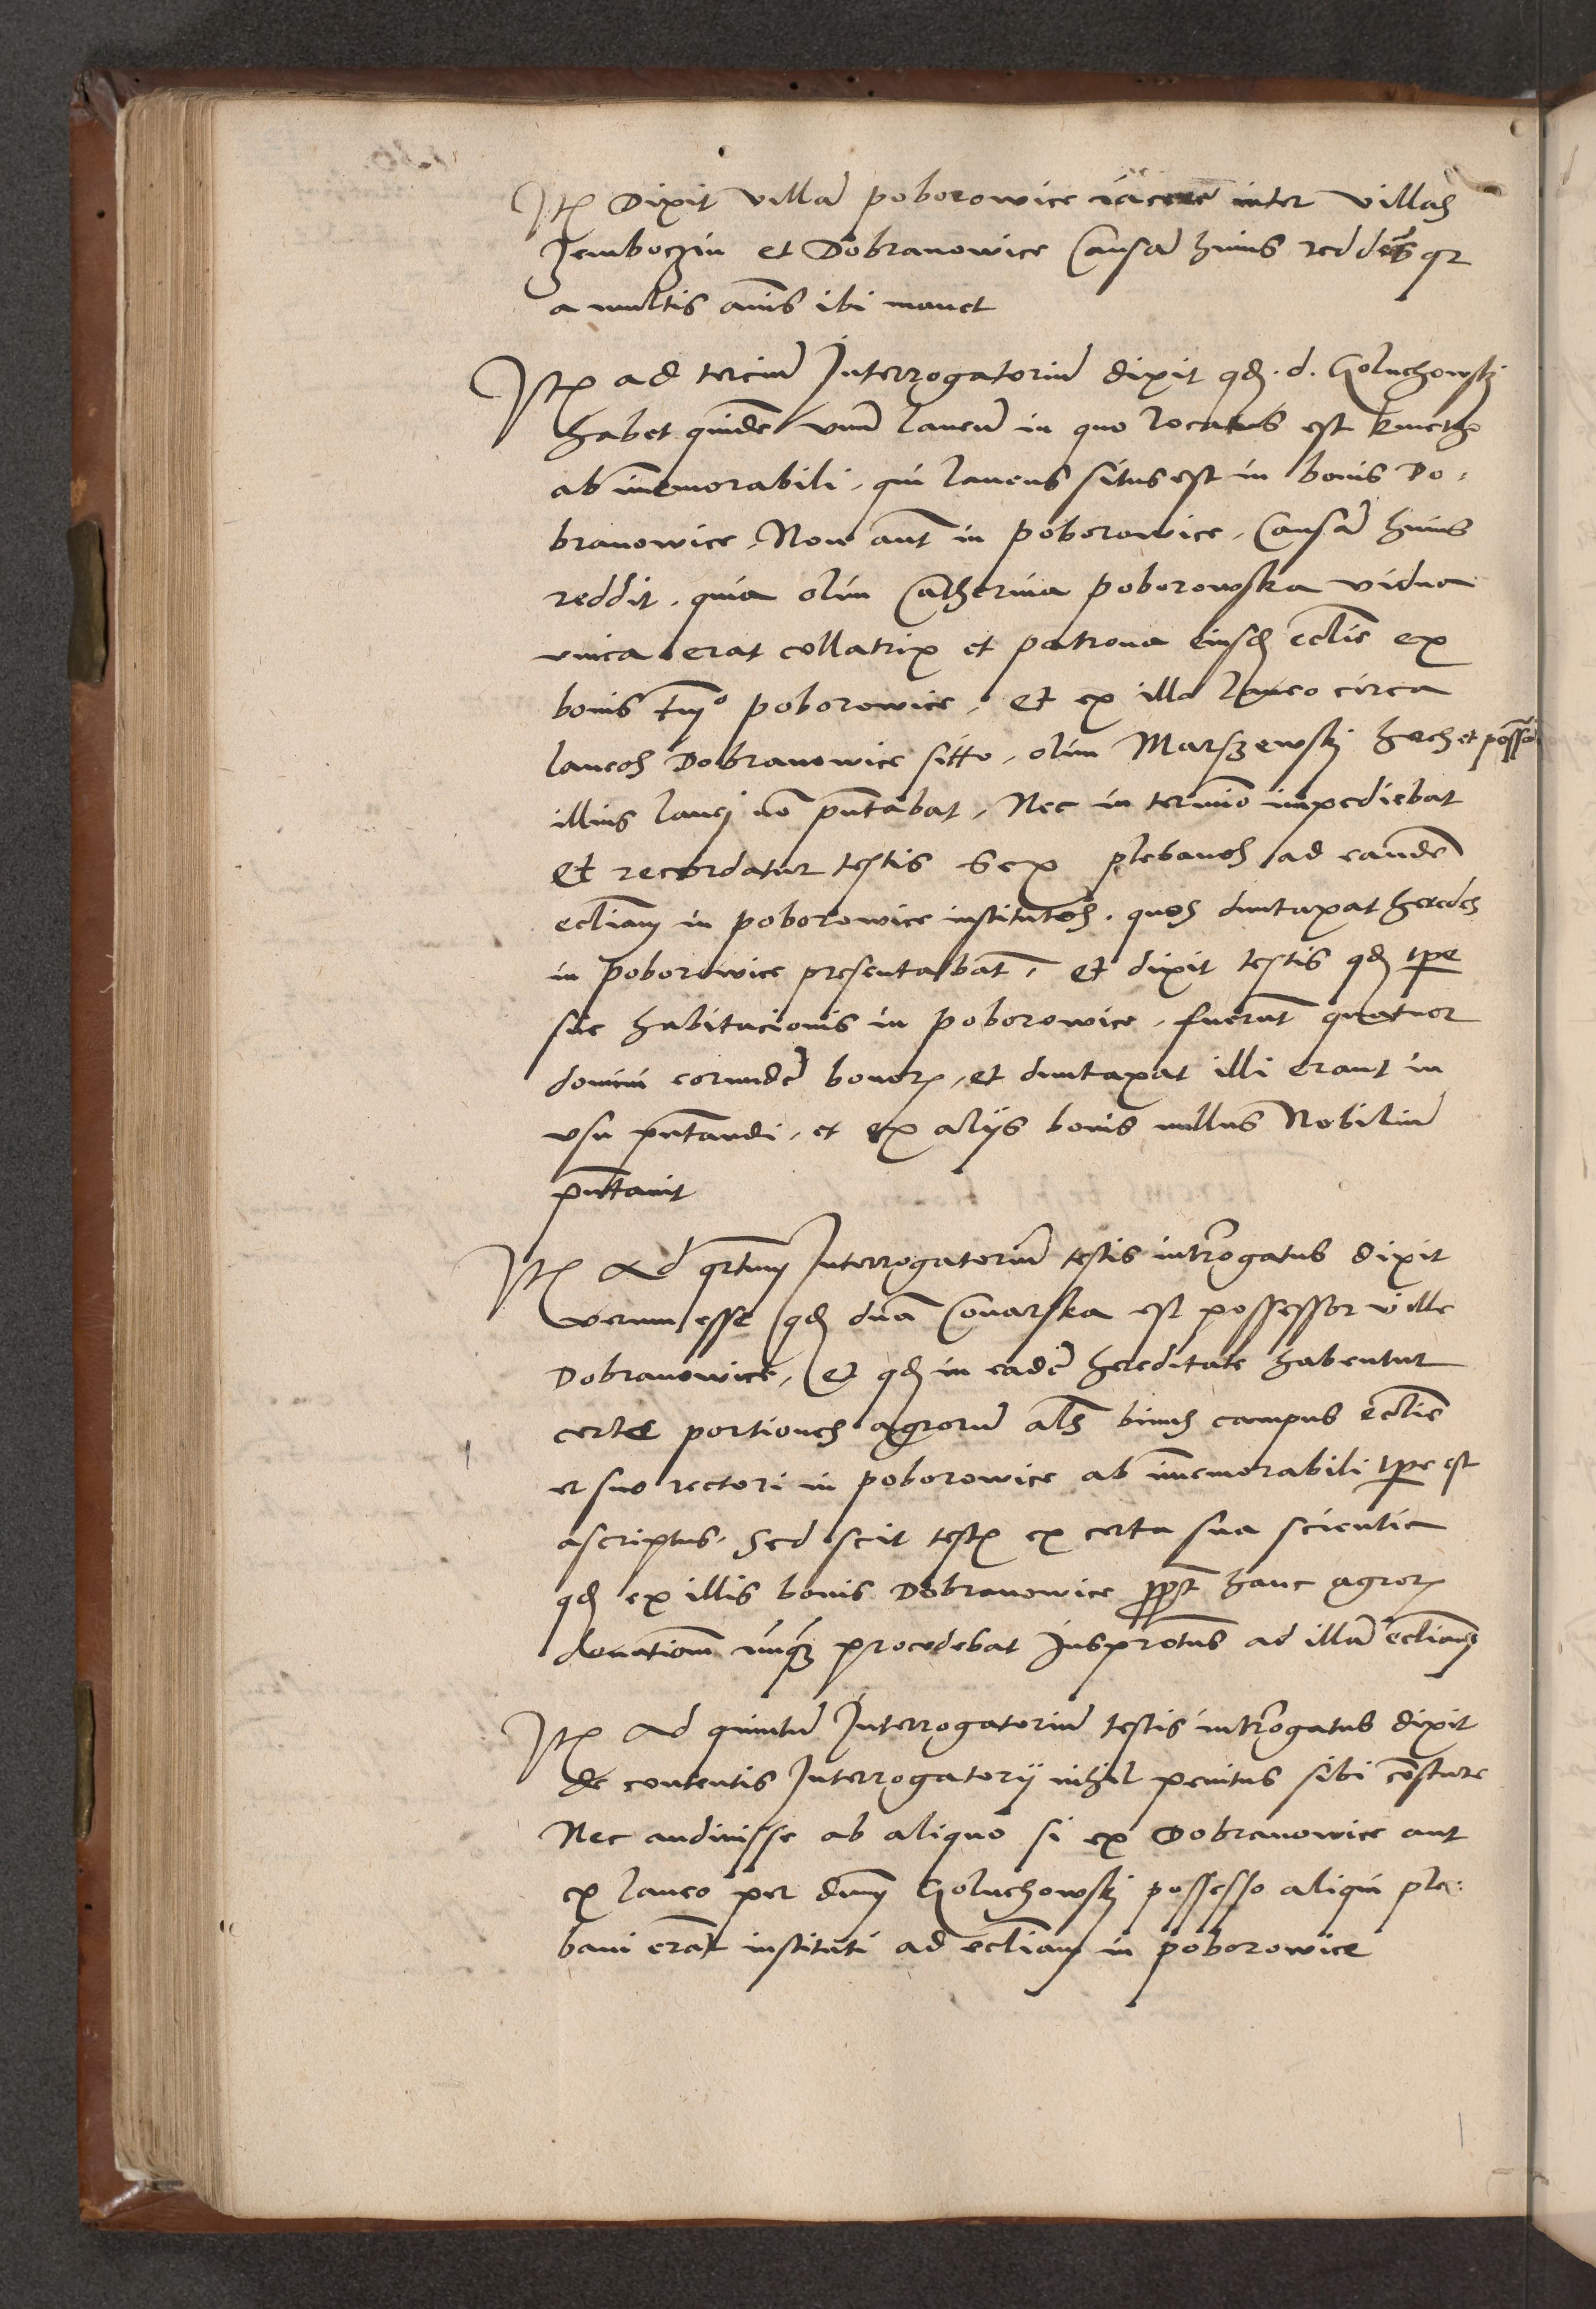 Itē Dixit villā poborowice iacere inter villas
Zemboczin et Dobranowice Causā huius reddēs qr
a multis annis ibi manet
Itē ad terciū Interrogatoriū dixit qd. d. Goluchowskj
habet quidē vnū laneū in quo locatus est kmetho
ab īmemorabili, qui laneus situs est in bonis Do-
branowice, Non aūt in poborowice, Causā huius
reddit, quia olim Catherina poborowska vidua
vnica erat collatrix et patrona eiusd eccliē ex
bonis tm̄o poborowice, et ex illo laneo circa
laneos Dobranowice sitto, olim Marszewskj heres et possessor
illius lanej nō pn̄tabat, Nec in termīo impediebat
Et recordatur testis sex plebanos ad eandē
eccliam in poborowice institutos, quos duntaxat heredes
in poborowice presentabāt, Et dixit testis qd tpe
sue habitacionis in poborowice, fuerūt quatuor
domini eorundē bonor, et duntaxat illi erant in
vsu pn̄tandi, et ex alijs bonis nullus Nobiliū
pn̄tauit
Itē Ad qrtum Interrogatoriū testis intrrogatus dixit
verum esse qd dna Conarska est possessor ville
Dobranowice, Et qd in eadē hereditate habentur
certe portiones agrorū als campus eccliē
et suo rectori in poborowice ab īmemorabili tpe est
ascriptus, Sed scit testis ex certa sua scientia
qd ex illis bonis Dobranowice hanc agror
donationē nuqz procedebat Juspr̄otus ad illā eccliam
Itē Ad quintū Interrogatoriū testis intrrogatus dixit
de contentis Interrogatorij nihil penitus sibi cōstare
Nec audiuisse ab aliquo si ex Dobranowice aut
ex laneo per dnm Goluchowskj possesso aliqui ple-
bani erāt instituti ad eccliam in poborowice